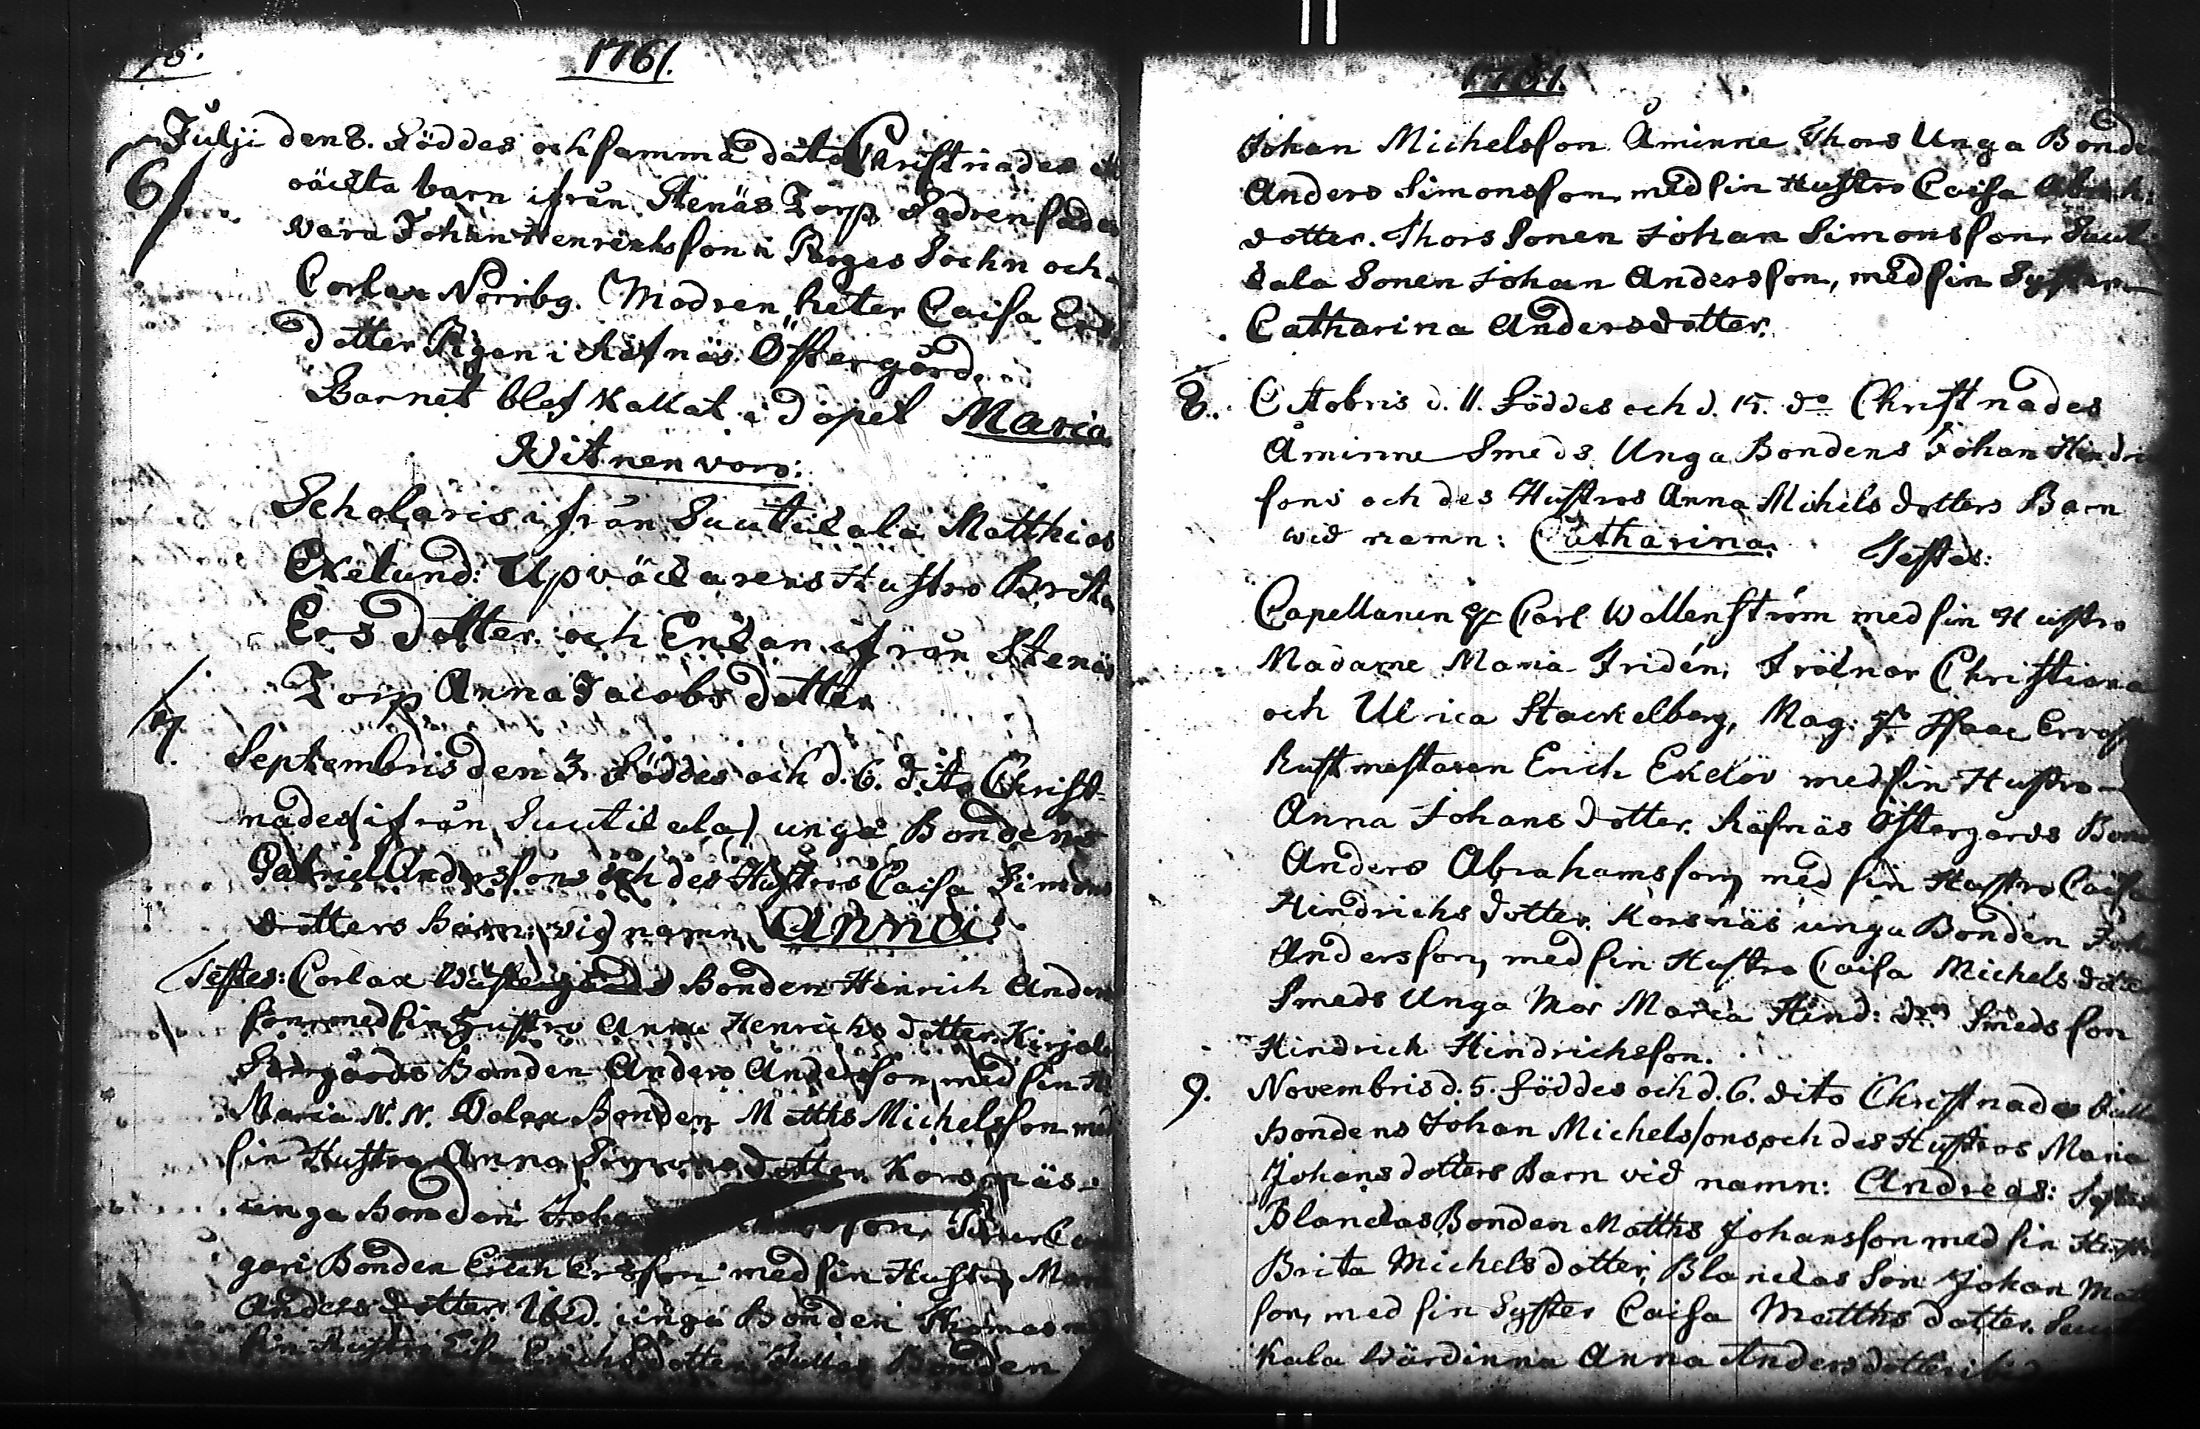 1761.
Julji den 8. Föddes och samma dato Christnades
6/ oäckta barn ifrån Stenäs Torp Fadren sades
vara Johan Henrichsson i Parges Sochn och
Corlax Norrbg. Modren heter Caisa Ers
dotter Pigan i Räfnäs Östergård.
Barnet blef Kallat i döpel Maria
Witnen voro:
Scholaris ifrån Suutikala Matthias
Ekelund: Upväckarens Hustro Brita
Ersdotter. och Enkan ifrån Stenäs
Torp Anna Jacobsdotter
7.
Septembris den 3. Föddes och d. 6. dito Christ-
nades (ifrån Suutikala) unga Bondens
Gabriel Anderssons och des Hustros Caisa Simons
dotters Barn: vid namn Anna.
Testes: Corlax Wästergårds Bonden Henrich Anders
son med sin Hustro Anna Henrichsdotter. Kirjala
Bonden Anders Andersson med sin H
Maria N. N. Bonden Matths Michelsson med
sin Hustro Anna Simonsdotter. Korsnäs
unga Bonden Joha
gari Bonden Erich Ersson med sin Hustro
Andersdotter. Ibid. unga Bonden Thomas
sin Hustro Erichsdotter Bonden
1761.
Johan Michelsson Åminne Thors Unga Bonde
Anders Simonsson, med sin Hustro Caisa
dotter. Thors Sonen Johan Simonsson. Suuti
kala Sonen Johan Andersson, med sin Syster
Catharina Andersdotter.
8. Octobris d. 11. Föddes och d. 15. do Christnades
Åminne Smeds Unga Bondens Johan Hindric
sons och des Hustros Anna Mihelsdotters Barn
wid namn: Catharina. Testes:
Capellanen Carl Wallenström med sin Hustro
Madame Maria Fridén, Fröknar Christiana
och Ulrica Stackelberg, Mag: Isaac
Rustmestaren Erich Ekelöv med sin Hustro
Anna Johansdotter. Räfnäs Östergårds Bond
Anders Abrahamsson, med sin Hustro Caisa
Hindrichsdotter. Korsnäs unga Bonden
Andersson, med sin Hustro Caisa Michelsdotter
Smeds Unga Mor Maria Hind: dr Smeds son
Hindrich Hindrichsson.
9. Novembris d. 5. Föddes och d. 6. dito Christnades
Bondens Johan Michelssons och des Hustros Maria
Johansdotters Barn vid namn: Andreas:
Blanckas Bonden Matths Johansson med sin Hustro
Brita Michelsdotter, Blanckas Son Johan Matt
son, med sin Syster Caisa Matthsdotter.
kala Wärdinna Anna Andersdotter